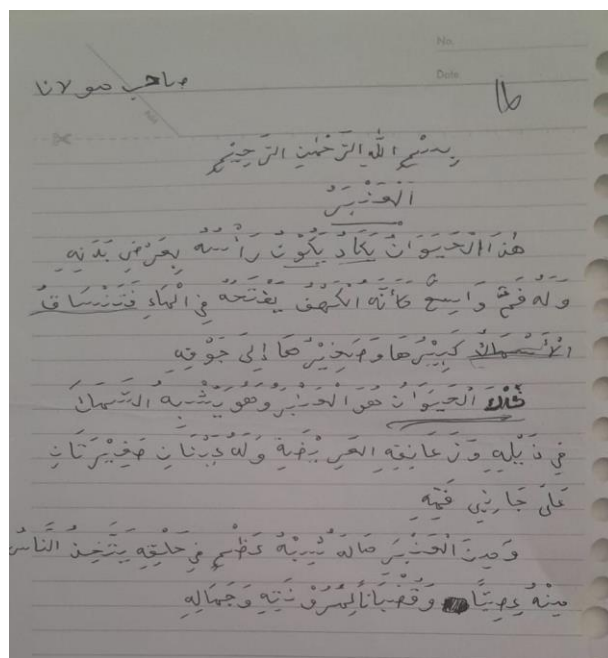 No.
Date
صاحب مولانا
16
بِسْمِ اللهِ الرَّحْمٰنِ الرَّحِيْمِ
اَلْعَنْبَرُ
هٰذَا الْحَيَوَانُ يَكَادُ يَكُوْنُ رَأْسُهُ بِعَرْضِ بَدَنِهِ
وَلَهُ فَمٌّ وَاسِعٌ كَأَنَّهُ الْكَهْفُ يَفْتَحُهُ فِي الْمَاءِ فَتَنْسَاقُ
الْأَسْمَاكُ كَبِيْرُهَا وَصَغِيْرُهَا إِلَى جَوْفِهِ
ذٰلِكَ الْحَيَوَانُ هُوَ الْعَنْبَرُ وَهُوَ يُشْبِهُ السَّمَكَ
فِي ذَيْلِهِ وَزَعَانِفِهِ الْعَرِيْضَةِ وَلَهُ عَيْنَانِ صَغِيْرَتَانِ
عَلَى جَانِبَيْ فَمِهِ
وَمِنَ الْعَنْبَرِ مَالَهُ شِبْهُ عَظْمٍ فِي حَلْقِهِ يَتَّخِذُ النَّاسُ
مِنْهُ عِصِيًّا وَقُضْبَانًا لِمُرُوْنَتِهِ وَجَمَالِهِ